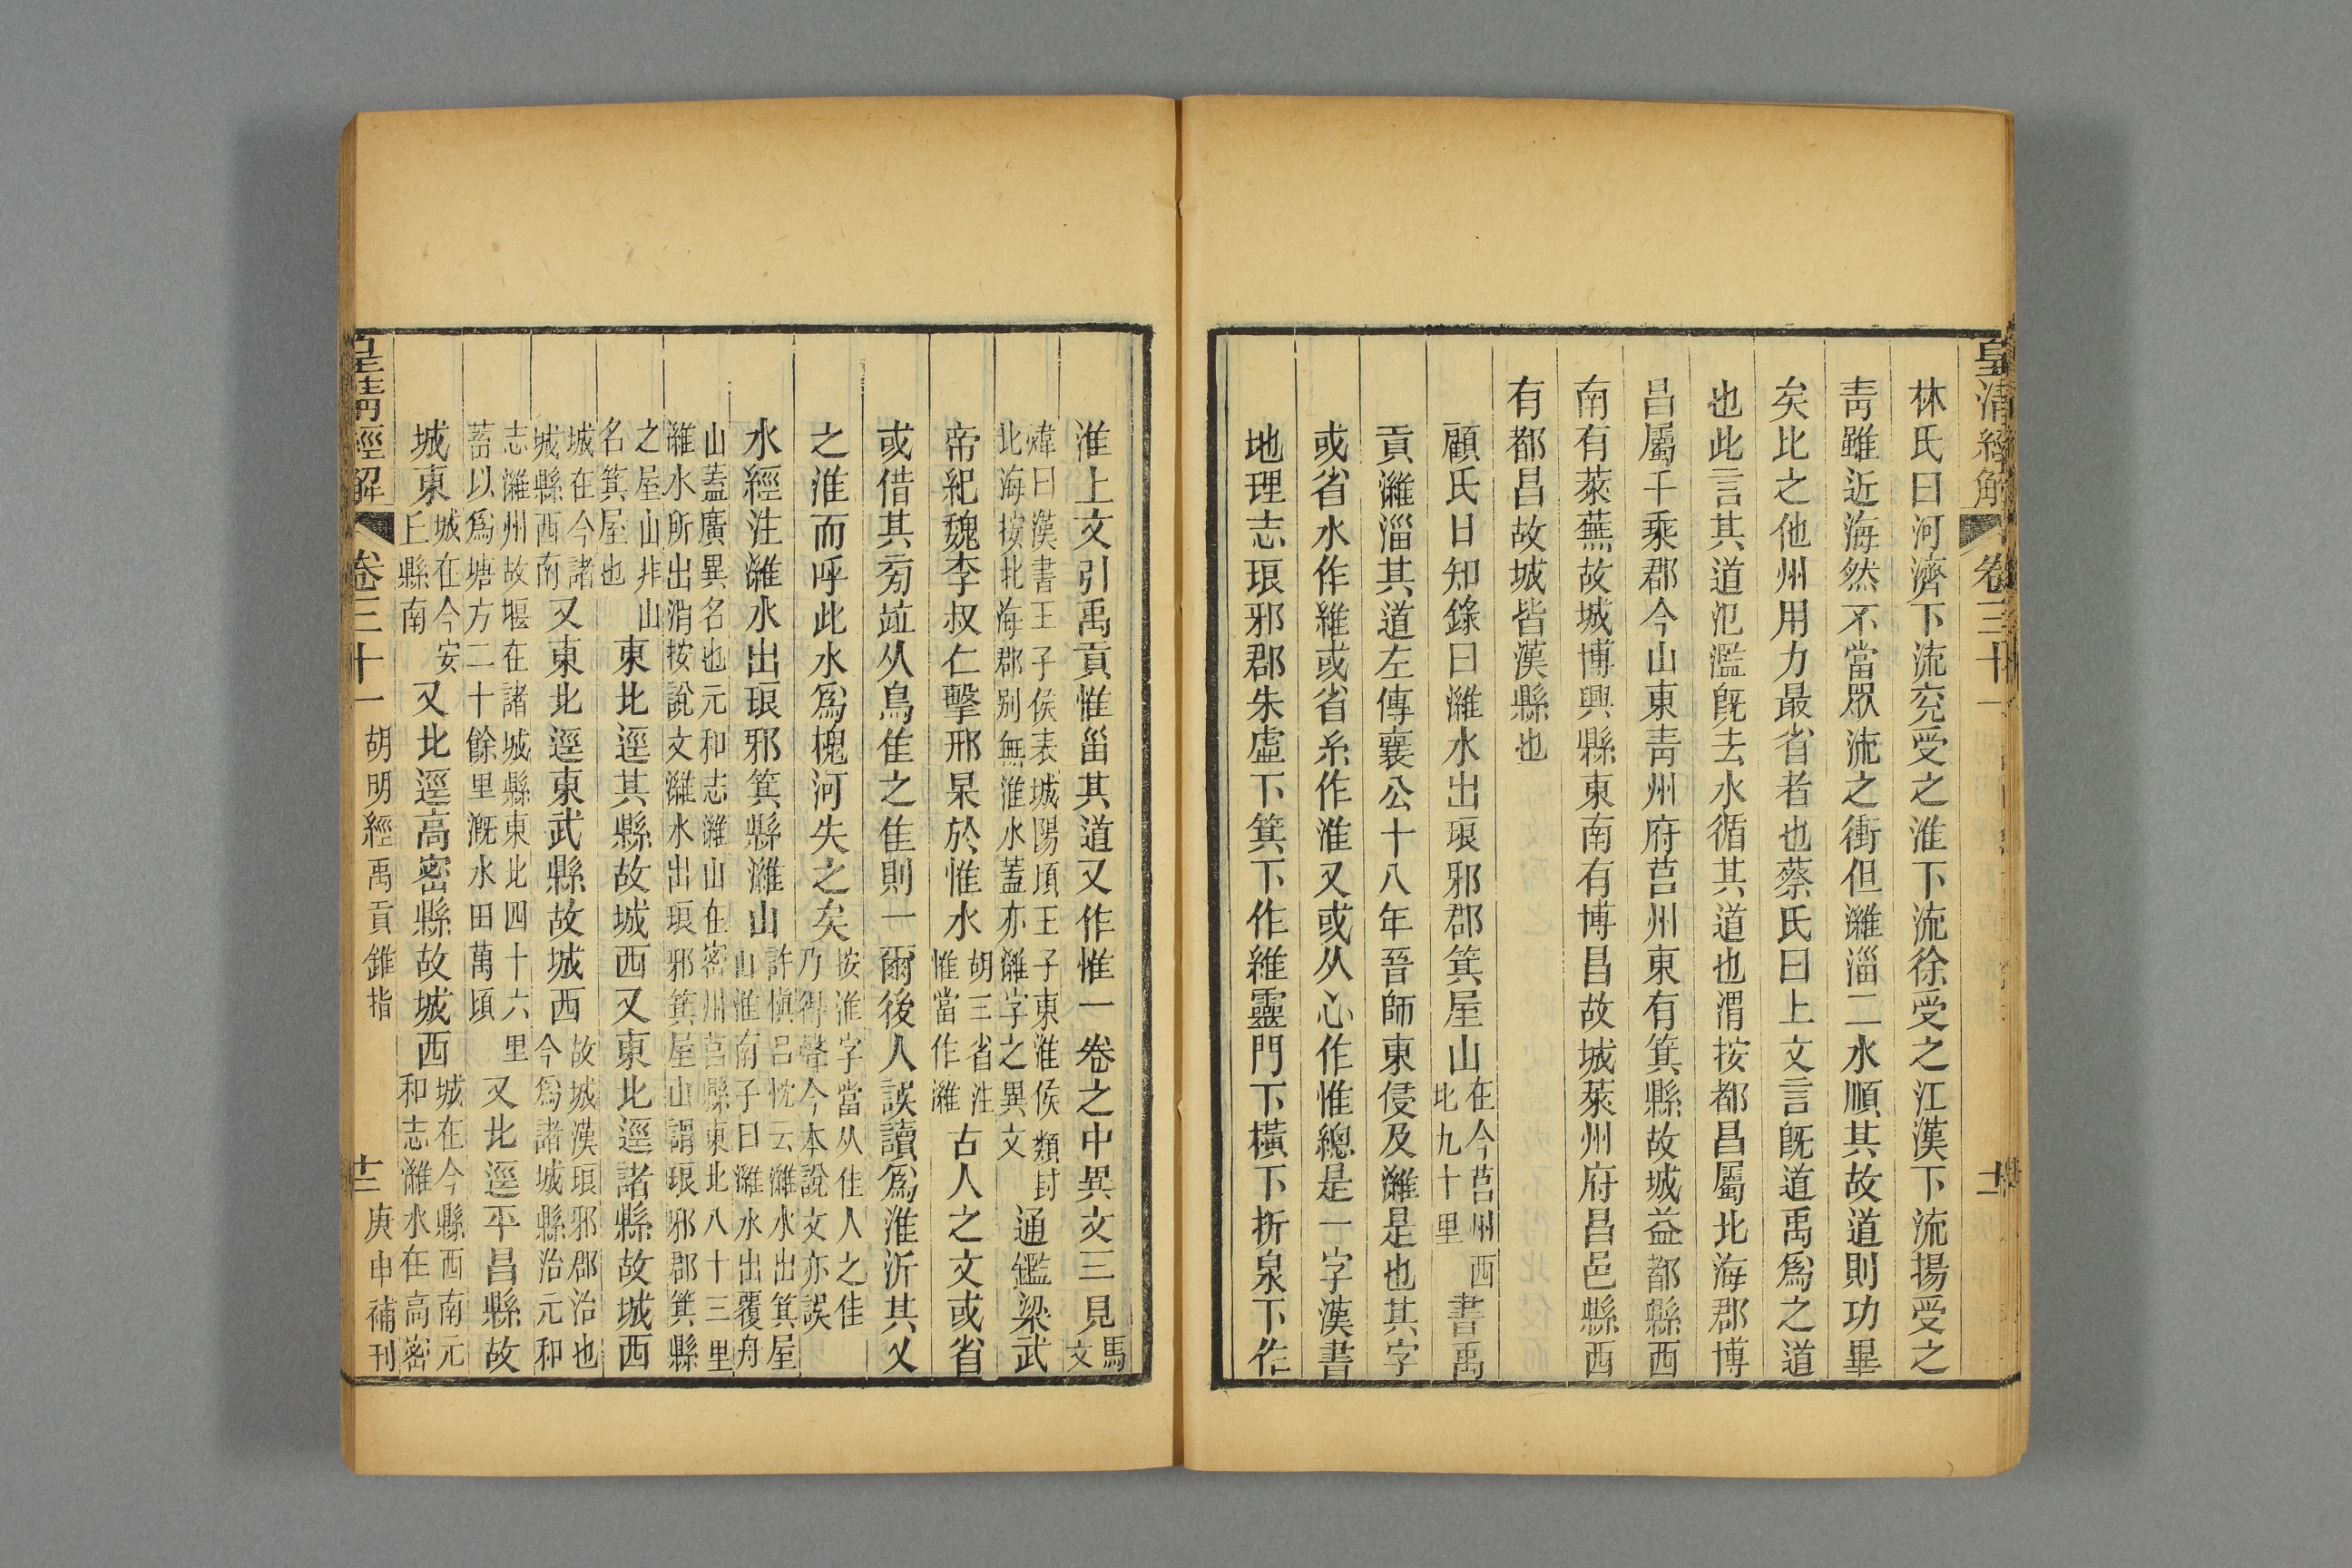 皇清經解 卷三十一
林氏曰河濟下流兖受之淮下流徐受之江漢下流揚受之
靑雖近海然不當眾流之衝但濰淄二水順其故道則功畢
矣比之他州用力最省者也蔡氏曰上文言旣道禹爲之道
也此言其道氾濫旣去水循其道也渭按都昌屬北海郡博
昌屬千乘郡今山東靑州府莒州東有箕縣故城益都縣西
南有萊蕪故城博興縣東南有博昌故城萊州府昌邑縣西
有都昌故城皆漢縣也
顧氏日知錄曰濰水出琅邪郡箕屋山在今莒州西北九十里書禹
貢濰淄其道左傳襄公十八年晉師東侵及濰是也其字
或省水作維或省糸作淮又或从心作惟總是一字漢書
地理志琅邪郡朱虛下箕下作維靈門下橫下折泉下作
淮上文引禹貢惟甾其道又作惟一卷之中異文三見馬文
煒曰漢書王子侯表城陽頃王子東淮侯類封
北海按北海郡别無淮水蓋亦濰字之異文
通鑑梁武
帝紀魏李叔仁擊邢杲於惟水胡三省注惟當作濰古人之文或省
或借其㫄竝从鳥隹之隹則一爾後人誤讀爲淮沂其乂
之淮而呼此水爲槐河失之矣按淮字當从佳人之佳乃得聲今本說文亦誤
水經注濰水出琅邪箕縣濰山許愼呂忱云濰水出箕屋山淮南子曰濰水出覆舟
山蓋廣異名也元和志濰山在密州莒縣東北八十三里
濰水所出渭按說文濰水出琅邪箕屋山謂琅邪郡箕縣
之屋山非山名箕屋也東北逕其縣故城西又東北逕諸縣故城西
城在今諸城縣西南又東北逕東武縣故城西故城漢琅邪郡治也今爲諸城縣治元和
志濰州故堰在諸城縣東北四十六里
蓄以爲塘方二十餘里漑水田萬頃
又北逕平昌縣故
城東城在今安丘縣南又北逕高密縣故城西城在今縣西南元和志濰水在高密
皇清經解 卷三十一 胡明經禹貢錐指 十二 庚申補刊